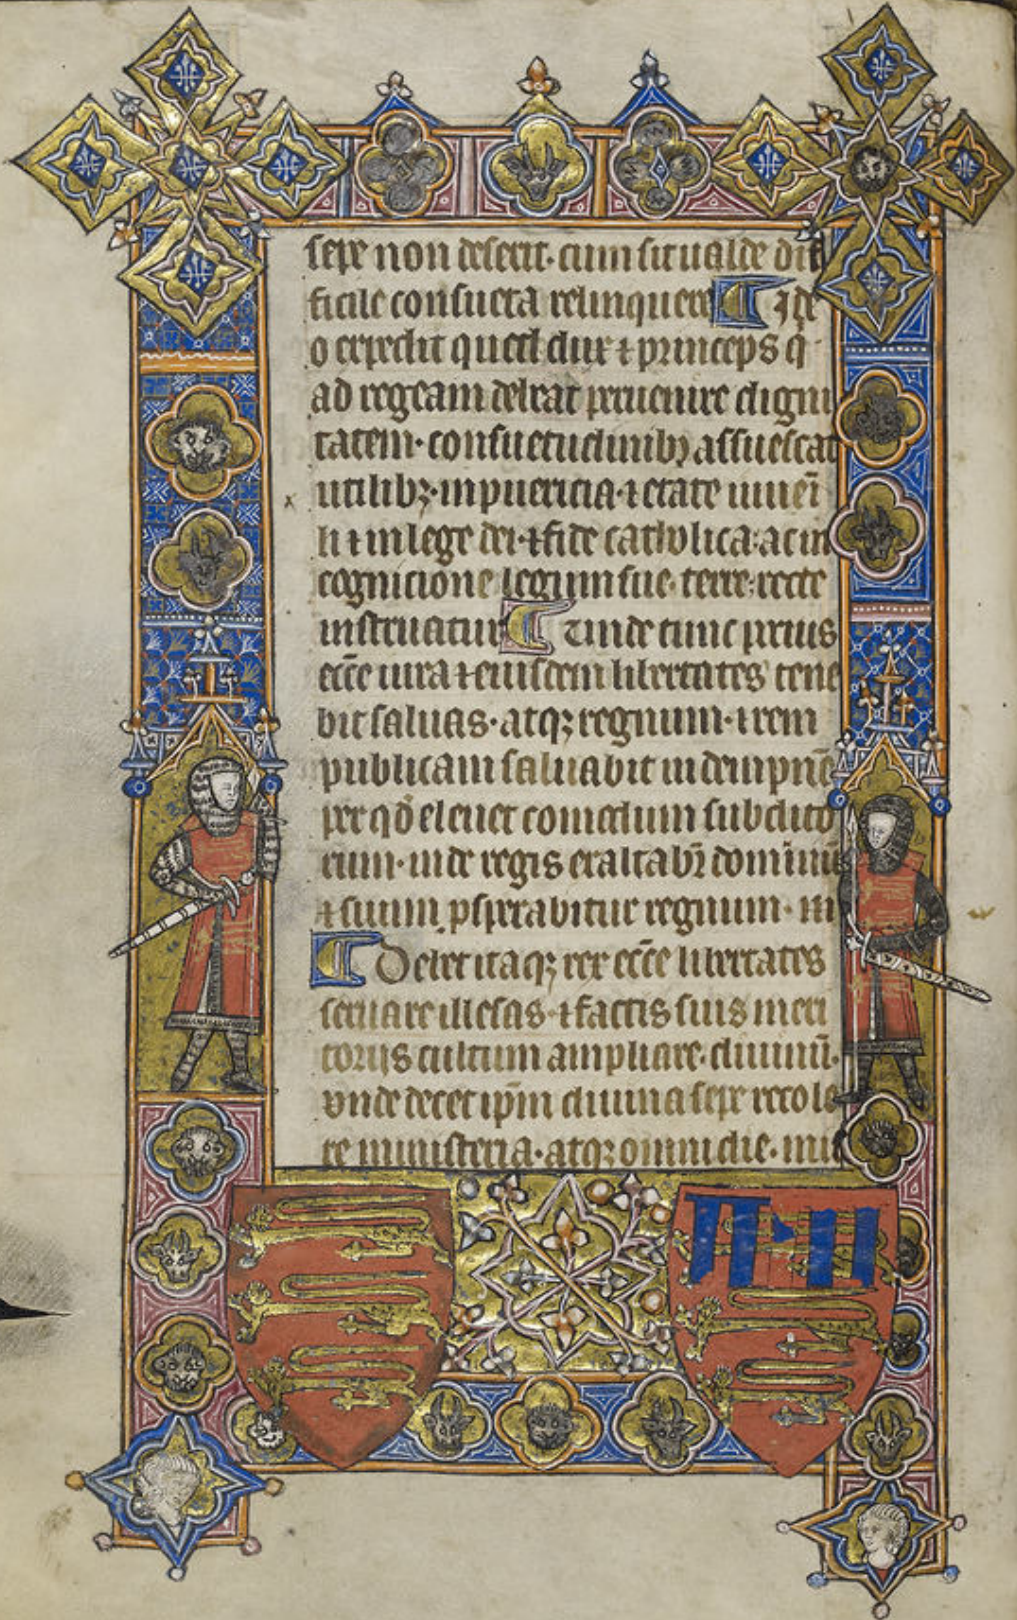 sepe non deserit· cum sit ualde dif
ficile consueta relinquere ¶ Ide
o expedit quod dux ⁊ princeps q
ad regeam debeat peruenire digni
tatem· consuetudinibꝫ assuescat
utilibꝫ· in puericia· ⁊ etate iuuēi
li ⁊ in lege dei· ⁊ fide catholica: ac in
cognicione legum sue terre: recte
instruatur ¶ Unde tunc prius
ecc̄e iura ⁊ eiusdem libertates tene
bit saluas· atqꝫ regnum· ⁊ rem
publicam saluabit indempnē
per qd̄ eleuet comodum subdito
rum· inde regis exaltabit̄ dominiū
⁊ suum ꝓsperabitur regnum·
¶ Debet itaqꝫ rex ecc̄e libertates
seruare illesas· ⁊ factis suis meri
torijs cultum ampliare· diuinū·
vnde decet ip̄m diuina sepe recole
re ministeria· atqꝫ omni die·